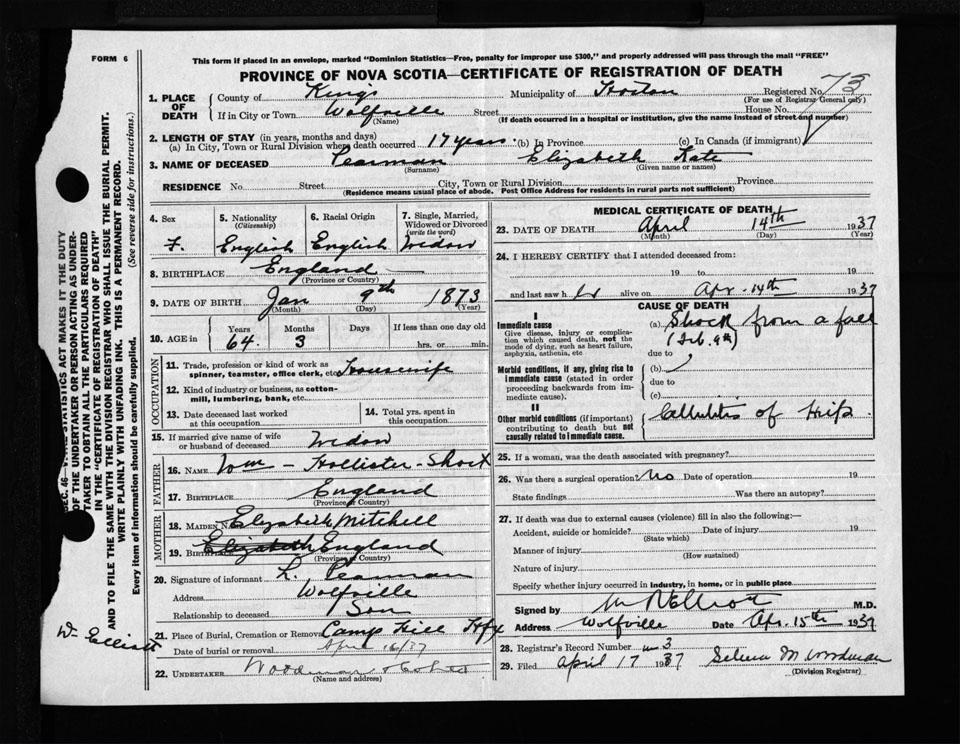 FORM 6
This form if placed in an envelope, marked "Dominion Statistics—Free, penalty for improper use $300," and properly addressed will pass through the mail "FREE"
PROVINCE OF NOVA SCOTIA—CERTIFICATE OF REGISTRATION OF DEATH
73
1. PLACE OF DEATH County of Kings Municipality of Horton Registered No.
(For use of Registrar General only)
If in City or Town Wolfville Street House No.
(Name) (If death occurred in a hospital or institution, give the name instead of street and number)
2. LENGTH OF STAY (in years, months and days)
(a) In City, Town or Rural Division where death occurred 17 years. (b) In Province (c) In Canada (if immigrant)
3. NAME OF DECEASED Pearman Elizabeth Kate
(Surname) (Given name or names)
RESIDENCE No. Street City, Town or Rural Division Province
(Residence means usual place of abode. Post Office Address for residents in rural parts not sufficient)
4. Sex 5. Nationality (Citizenship) 6. Racial Origin 7. Single, Married, Widowed or Divorced (write the word)
F. English English Widow
8. BIRTHPLACE England
(Province or Country)
9. DATE OF BIRTH Jan 9th 1873
(Month) (Day) (Year)
10. AGE in Years Months Days If less than one day old
64. 3 hrs. or min.
OCCUPATION
11. Trade, profession or kind of work as spinner, teamster, office clerk, etc. Housewife
12. Kind of industry or business, as cotton-mill, lumbering, bank, etc.
13. Date deceased last worked at this occupation
14. Total yrs. spent in this occupation
15. If married give name of wife or husband of deceased Widow
FATHER
16. NAME Wm - Hollister - Short
17. BIRTHPLACE England
(Province or Country)
MOTHER
18. MAIDEN NAME Elizabeth Mitchell
19. BIRTHPLACE Elizabeth England
(Province or Country)
20. Signature of informant L. Pearman
Address Wolfville
Relationship to deceased Son
21. Place of Burial, Cremation or Removal Camp Hill Hfx
Date of burial or removal April 16/37
22. UNDERTAKER Woodman
(Name and address)
MEDICAL CERTIFICATE OF DEATH
23. DATE OF DEATH April 14th 1937
(Month) (Day) (Year)
24. I HEREBY CERTIFY that I attended deceased from:
19 to 19
and last saw her alive on Apr. 14th 1937
CAUSE OF DEATH
I
Immediate cause
Give disease, injury or complication which caused death, not the mode of dying, such as heart failure, asphyxia, asthenia, etc
(a) Shock from a fall
(Feb. 9th)
due to
Morbid conditions, if any, giving rise to immediate cause (stated in order proceeding backwards from immediate cause).
(b)
due to
(c)
II
Other morbid conditions (if important) contributing to death but not causally related to immediate cause.
Cellulitis of Hips.
25. If a woman, was the death associated with pregnancy?
26. Was there a surgical operation? No Date of operation 19
State findings Was there an autopsy?
27. If death was due to external causes (violence) fill in also the following:—
Accident, suicide or homicide? Date of injury 19
(State which)
Manner of injury
(How sustained)
Nature of injury
Specify whether injury occurred in industry, in home, or in public place
Signed by M.D.
Address Wolfville Date Apr. 15th 1937
28. Registrar's Record Number 3
29. Filed April 17 1937 Selena M Woodman
(Division Registrar)
OF THE UNDERTAKER OR PERSON ACTING AS UNDER-
TAKER TO OBTAIN ALL THE PARTICULARS REQUIRED
IN THE "CERTIFICATE OF REGISTRATION OF DEATH"
AND TO FILE THE SAME WITH THE DIVISION REGISTRAR WHO SHALL ISSUE THE BURIAL PERMIT.
WRITE PLAINLY WITH UNFADING INK. THIS IS A PERMANENT RECORD.
Every item of information should be carefully supplied. (See reverse side for instructions.)
Dr Elliott